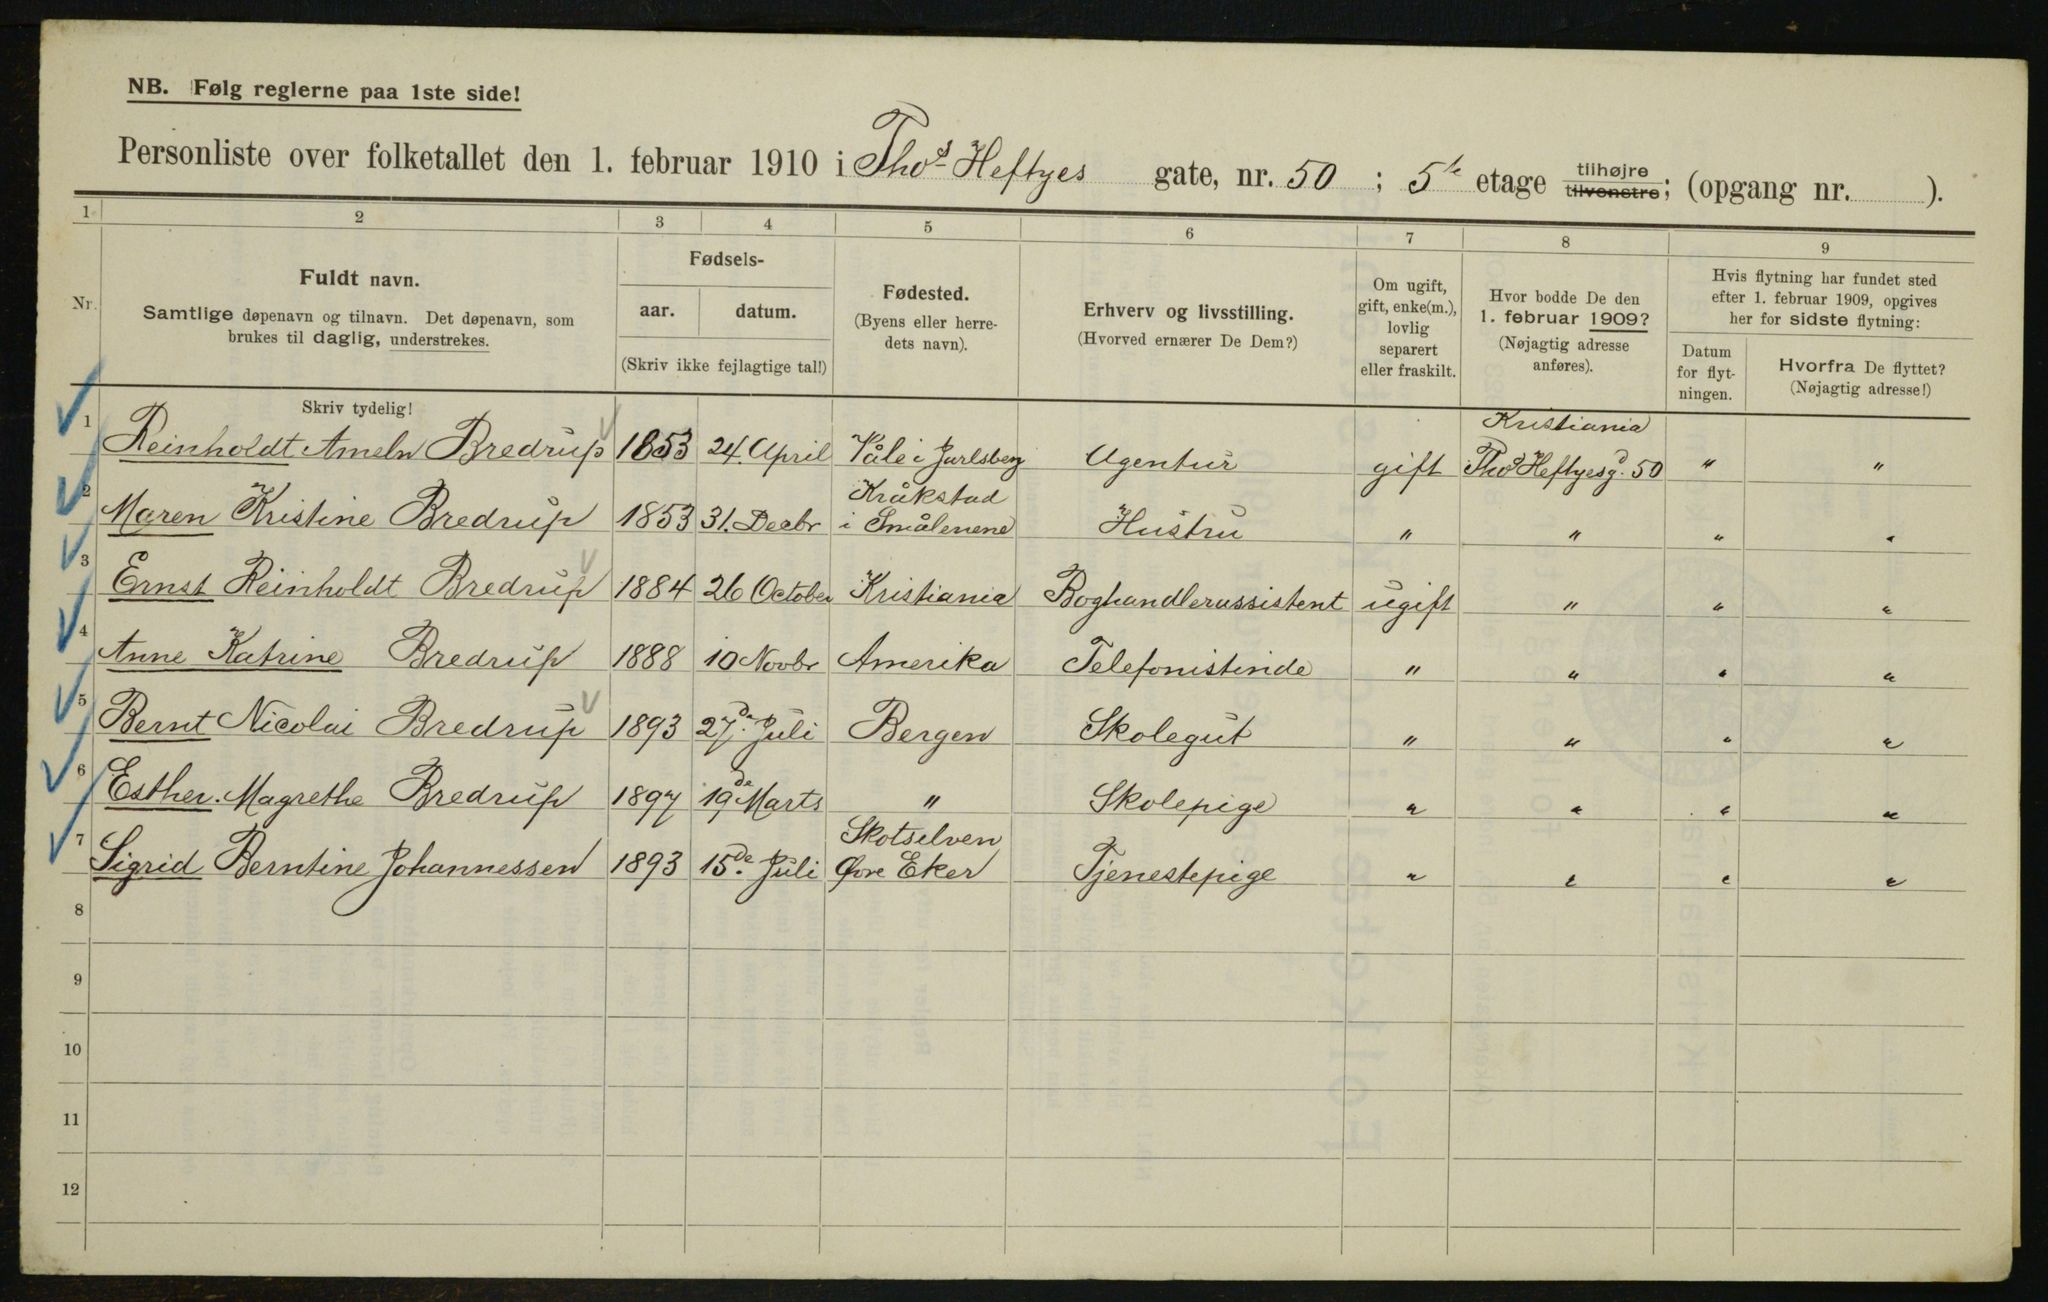 NB. Følg reglerne paa 1ste side!
Personliste over folketallet den 1. februar 1910 i Thos Heftyes gate, nr. 50 ; 5te etage tilhøjre tilvenstre; (opgang nr. ).
1 2 3 4 5 6 7 8 9
Nr. Fuldt navn. Samtlige døpenavn og tilnavn. Det døpenavn, som brukes til daglig, understrekes.
Fødsels- aar. datum. (Skriv ikke fejlagtige tal!)
Fødested. (Byens eller herredets navn).
Erhverv og livsstilling. (Hvorved ernærer De Dem?)
Om ugift, gift, enke(m.), lovlig separert eller fraskilt.
Hvor bodde De den 1. februar 1909? (Nøjagtig adresse anføres).
Hvis flytning har fundet sted efter 1. februar 1909, opgives her for sidste flytning:
Datum for flytningen. Hvorfra De flyttet? (Nøjagtig adresse!)
Skriv tydelig!
1 Reinholdt Ameln Bredrup 1853 24. April Våle i Jarlsberg Agentur gift Kristiania Thos Heftyesg. 50 " "
2 Maren Kristine Bredrup 1853 31. Decbr Kråkstad i Smålenene Hustru " " " "
3 Ernst Reinholdt Bredrup 1884 26 October Kristiania Boghandlerassistent ugift " " "
4 Anne Katrine Bredrup 1888 10 Novbr Amerika Telefonistinde " " " "
5 Bernt Nicolai Bredrup 1893 27de Juli Bergen Skolegut " " " "
6 Esther. Magrethe Bredrup 1897 19de Marts " Skolepige " " " "
7 Sigrid Berntine Johannessen 1893 15de Juli Skotselven Øvre Eker Tjenestepige " " " "
8
9
10
11
12